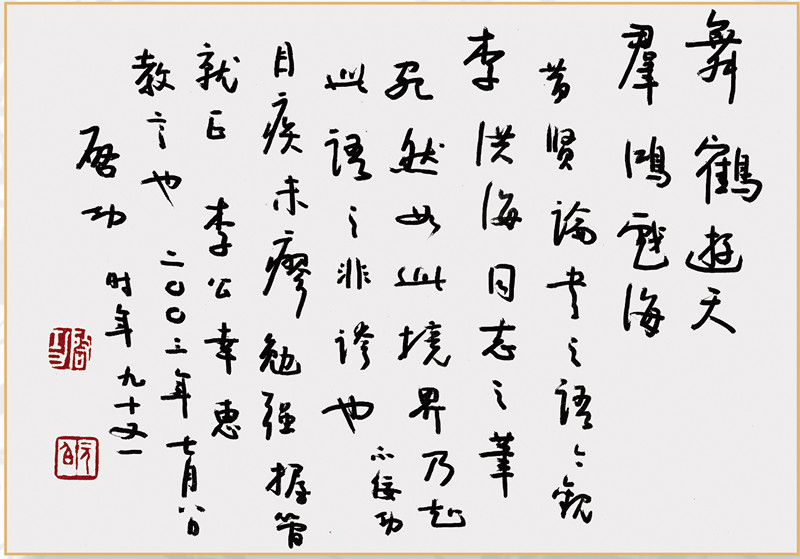 舞鶴遊天
羣鴻戲海
昔賢論書之語今觀
李洪海同志之筆
宛然如此境界乃知
此語之非誇也 不佞功
目疾未瘳勉強握管
就正 李公幸惠
教之也 二〇〇三年七月八日
启功 时年九十又一